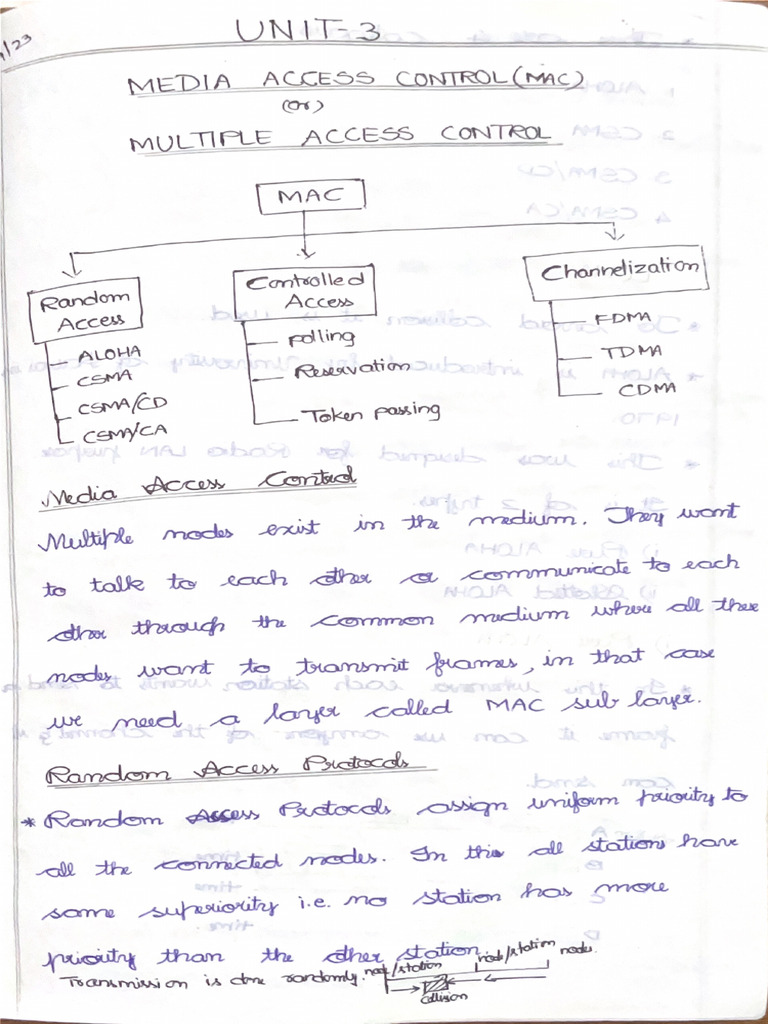 1/23
UNIT-3
MEDIA ACCESS CONTROL (MAC)
(or)
MULTIPLE ACCESS CONTROL
MAC
Random Access
ALOHA
CSMA
CSMA/CD
CSMA/CA
Controlled Access
Polling
Reservation
Token passing
Channelization
FDMA
TDMA
CDMA
Media Access Control
Multiple nodes exist in the medium. They want
to talk to each other or communicate to each
other through the common medium where all these
nodes want to transmit frames, in that case
we need a layer called MAC sub layer.
Random Access Protocols
* Random Access Protocols assign uniform priority to
all the connected nodes. In this all stations have
same superiority i.e. no station has more
priority than the other station.
Transmission is done randomly. node/station node/station node.
collision